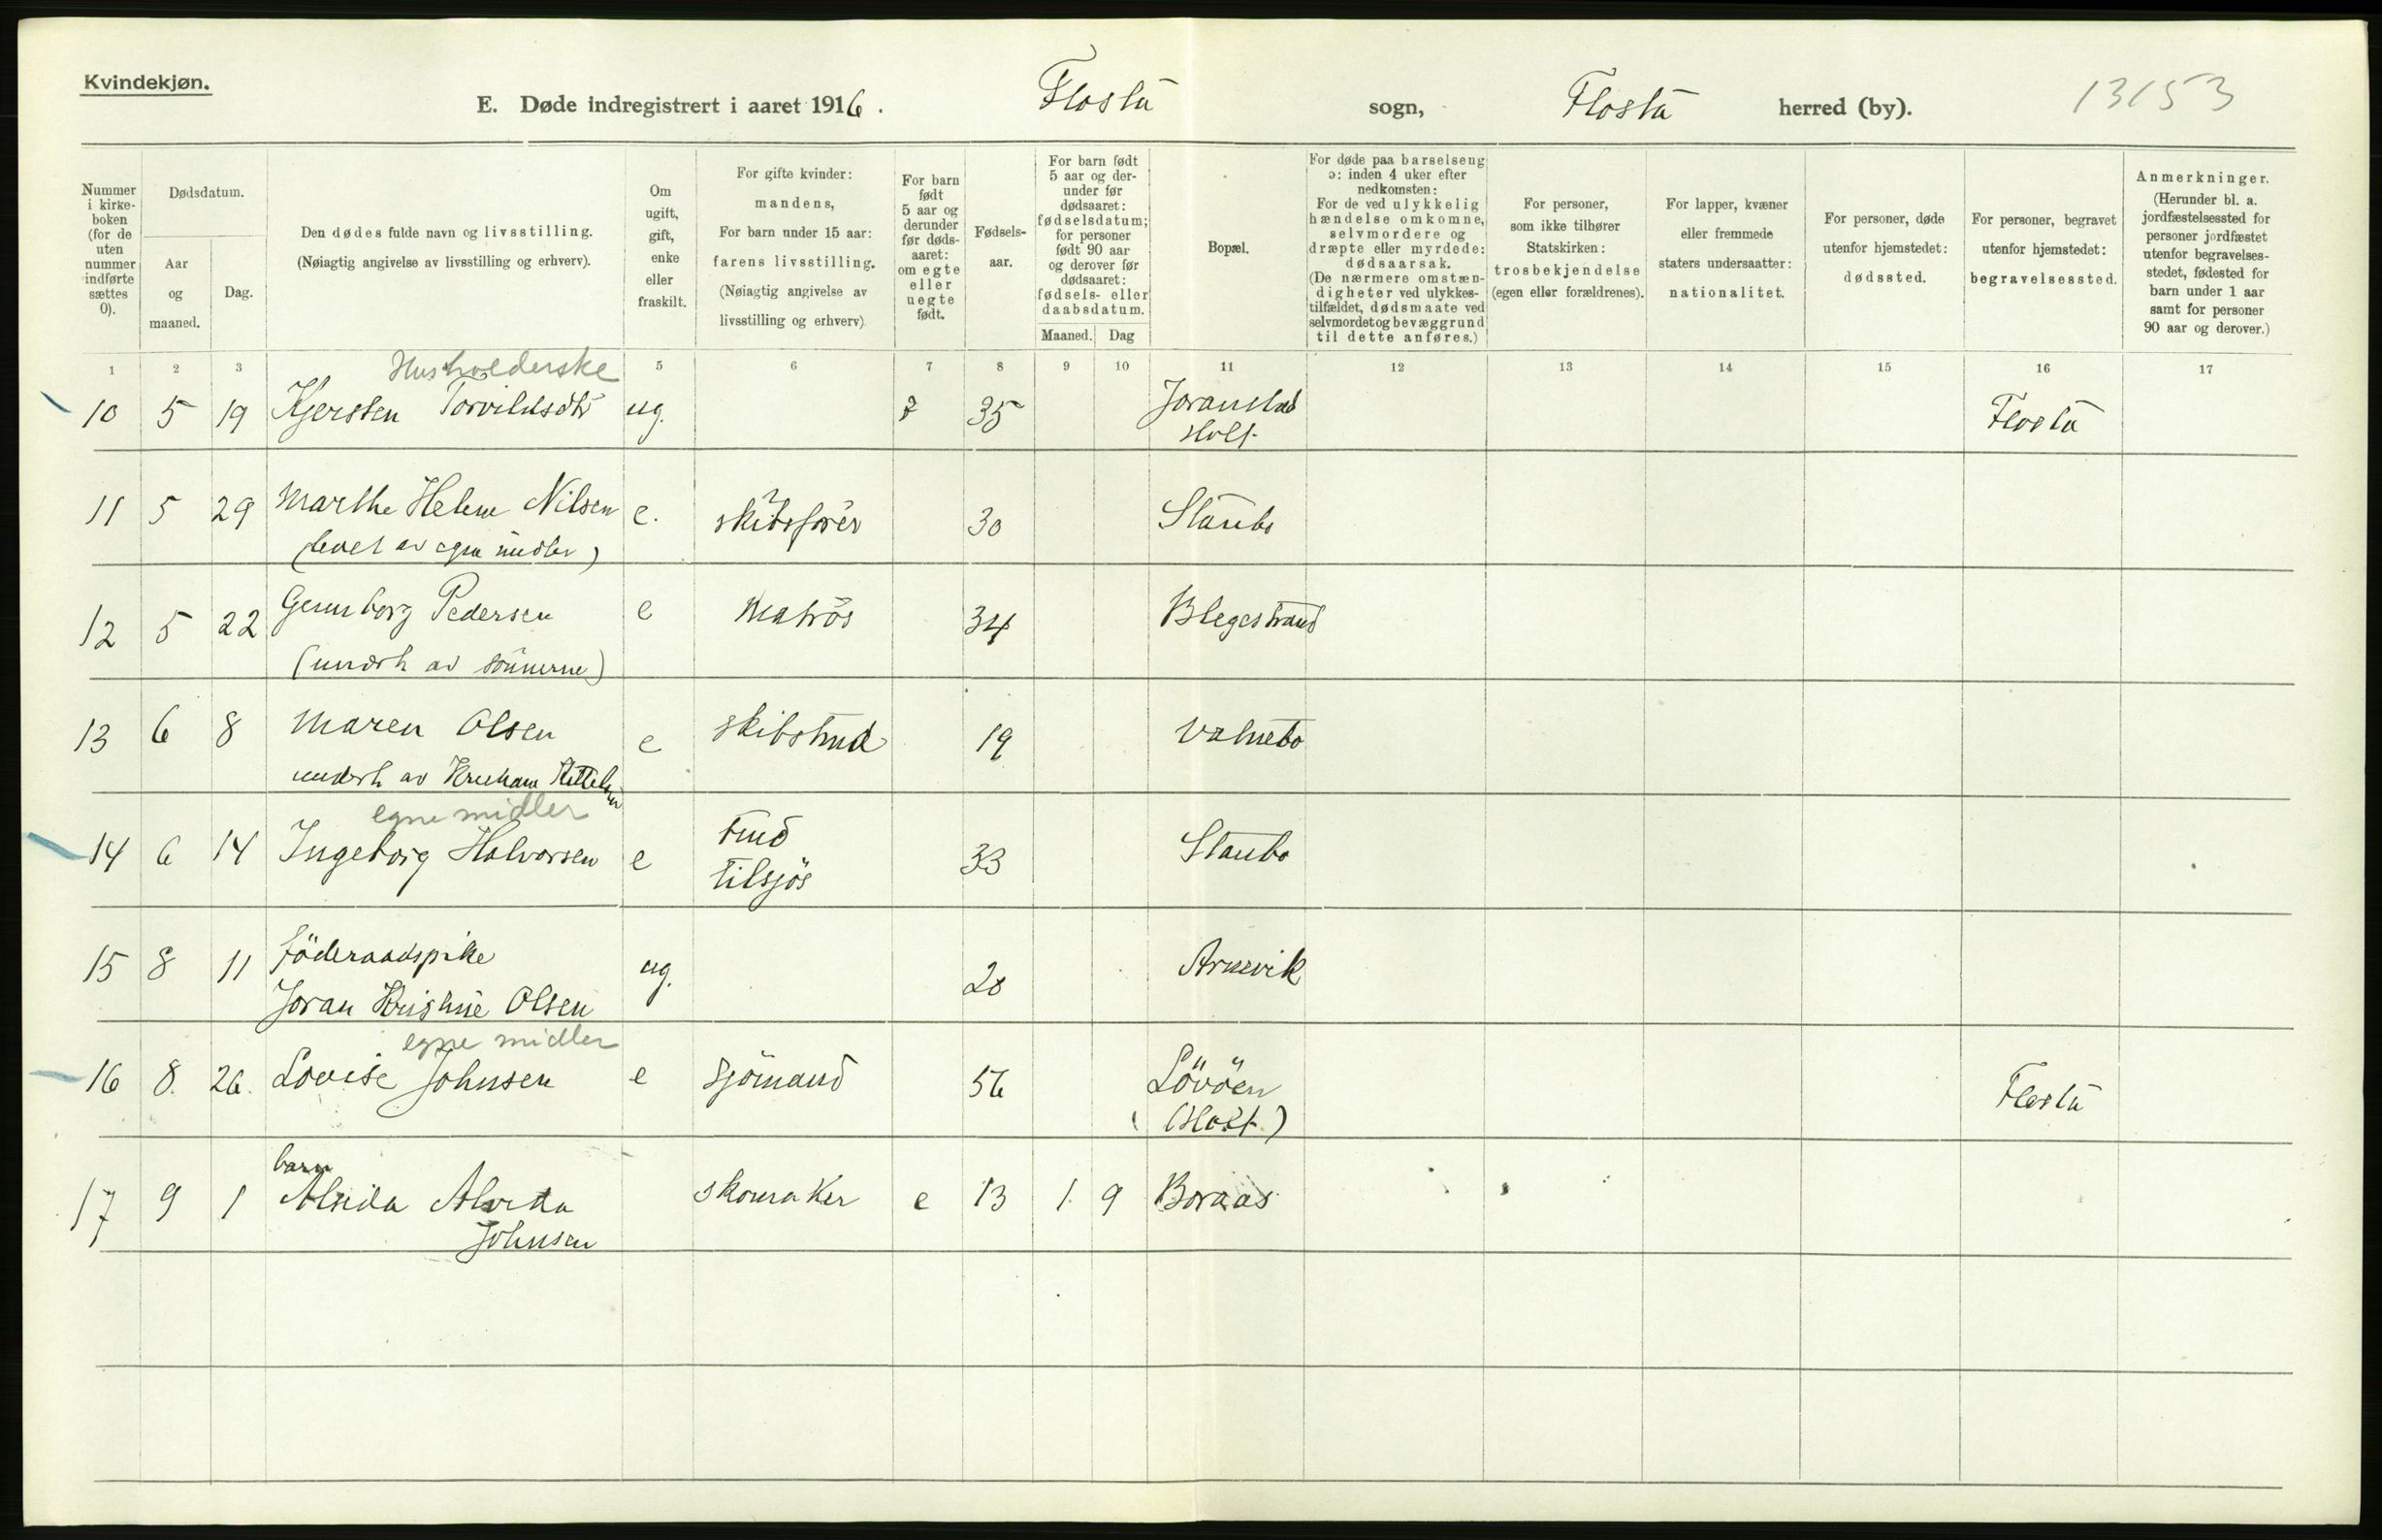 Kvindekjøn.
E. Døde indregistrert i aaret 1916. Flosta sogn, Flosta herred (by). 13153
Nummer i kirke-boken (for de uten nummer indførte sættes 0).
Dødsdatum.
Aar og maaned.
Dag.
Den dødes fulde navn og livsstilling.
(Nøiagtig angivelse av livsstilling og erhverv).
Om ugift, gift, enke eller fraskilt.
For gifte kvinder: mandens,
For barn under 15 aar: farens livsstilling.
(Nøiagtig angivelse av livsstilling og erhverv)
For barn født 5 aar og derunder før døds-aaret: om egte eller uegte født.
Fødsels-aar.
For barn født 5 aar og der-under før dødsaaret: fødselsdatum; for personer født 90 aar og derover før dødsaaret: fødsels- eller daabsdatum.
Maaned. Dag
Bopæl.
For døde paa barselseng ɔ: inden 4 uker efter nedkomsten:
For de ved ulykkelig hændelse omkomne, selvmordere og dræpte eller myrdede: dødsaarsak.
(De nærmere omstæn-digheter ved ulykkes-tilfældet, dødsmaate ved selvmordet og bevæggrund til dette anføres.)
For personer, som ikke tilhører Statskirken: trosbekjendelse (egen eller forældrenes).
For lapper, kvæner eller fremmede staters undersaatter: nationalitet.
For personer, døde utenfor hjemstedet: dødssted.
For personer, begravet utenfor hjemstedet: begravelsessted.
Anmerkninger.
(Herunder bl. a. jordfæstelsessted for personer jordfæstet utenfor begravelses-stedet, fødested for barn under 1 aar samt for personer 90 aar og derover.)
1 2 3 5 6 7 8 9 10 11 12 13 14 15 16 17
Husholderske
10 5 19 Kjersten Torvildsdtr ug. 35 Joranstad Flosta
Holt
11 5 29 Marthe Helene Nilsen e. skibsfører 30 Staubo
(levet av egne midler)
12 5 22 Gunborg Pedersen e Matrös 34 Blegestrand
(undrh av sönnerne)
13 6 8 Maren Olsen e skibstmd 19 Valnebo
undrh av
egne midler
14 6 14 Ingeborg Halvorsen e tmd tilsjös 33 Staubo
15 8 11 föderaadspike ug. 20 Arnevik
Joran Kristine Olsen
egne midler
16 8. 26. Lovise Johnsen e sjömand 56 Lövöen Flosta
(Holt.)
barn
17 9 1 Alvida Johnsen skomaker e 13 1 9 Boraas